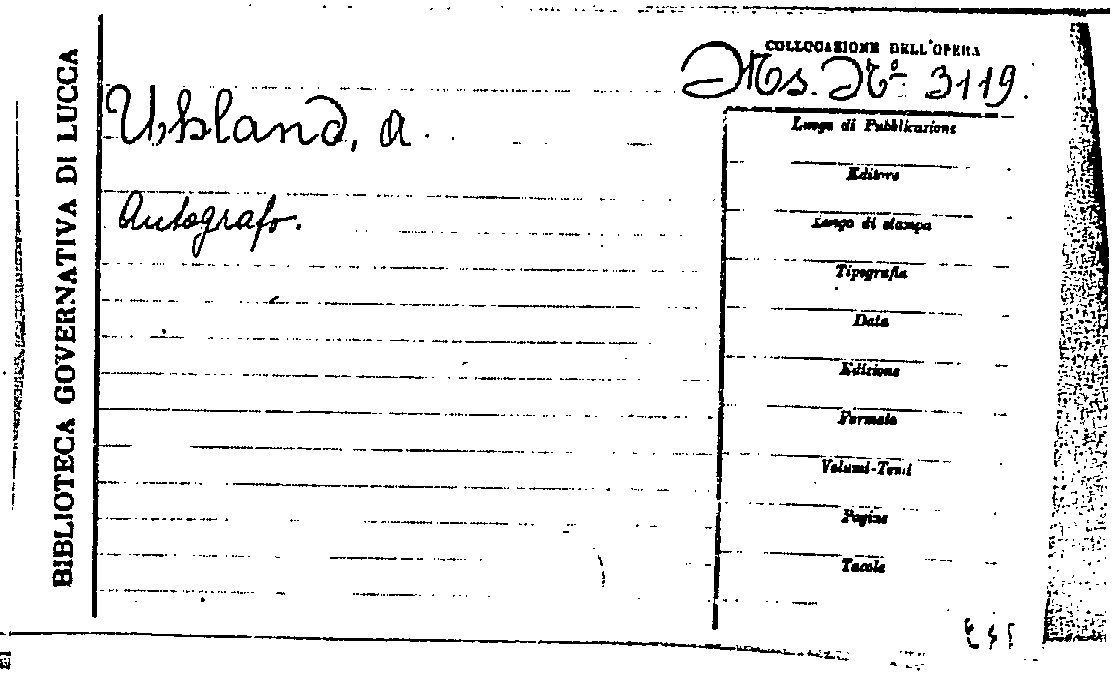 BIBLIOTECA GOVERNATIVA DI LUCCA
COLLOCAZIONE DELL'OPERA
Ms. Nº 3119.
Uhland, A.
Autografo.
Luogo di Pubblicazione
Editore
Luogo di stampa
Tipografia
Data
Edizione
Formato
Volumi-Tomi
Pagine
Tavole